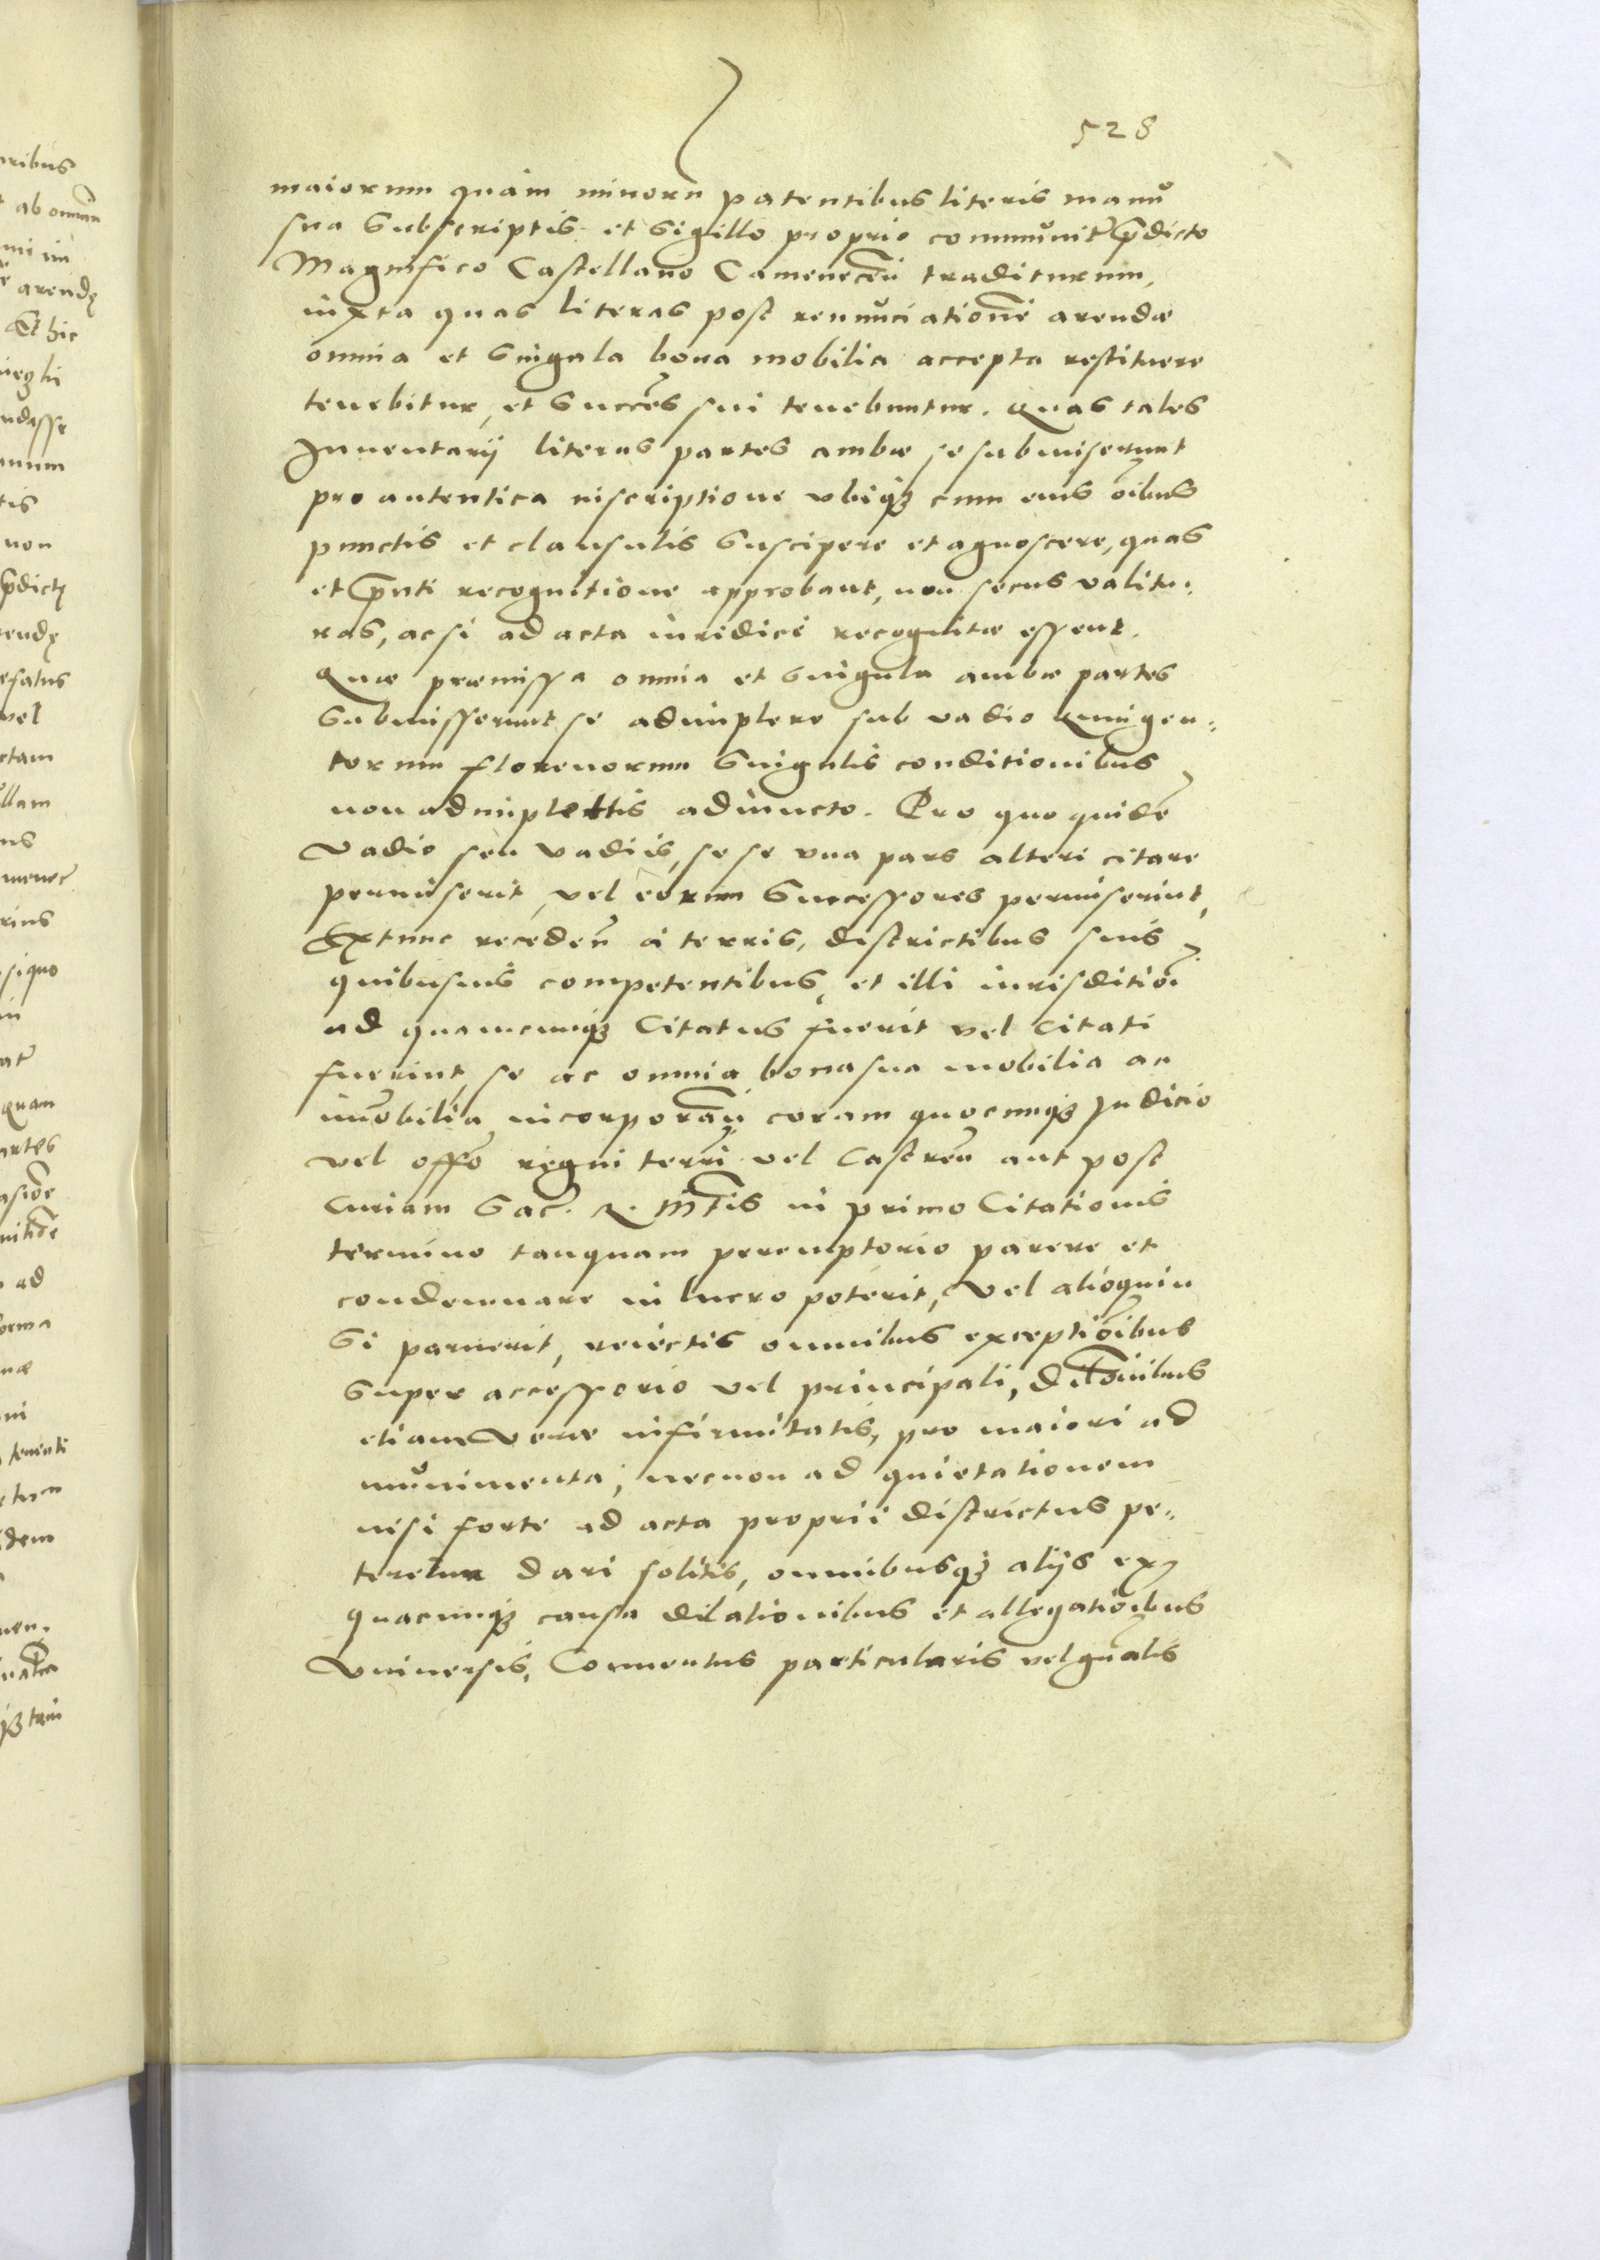 528
maiorum quàm minoru patentibus literis manu
sua Subscriptis et Sigillo proprio communit p̃dicto
Magnifico Castellano Camenecen̄ traditurum,
iuxta quas literas post renunciationē arendæ
omnia et Singula bona mobilia accepta restituere
tenebitur, et Succēs sui tenebuntur. Quas tales
Inuentarij literas partes ambæ se submiserunt
pro autentica inscriptione vbiqꝫ cum eius oībus
punctis et clausulis Suscipere et agnoscere, quas
et p̃nti recognitione approbant, non secus valitu:
ras, ac si ad acta iuridicè recognitæ essent.
Quæ præmissa omnia et Singula ambæ partes
Submisserunt se adimplere sub vadio Quingen:
torum florenorum Singulis conditionibus
non adimplettis adiuncto. Pro quo quidē
Vadio seu Vadiis, se se vna pars alteri citare
permiserit, vel eorum Successores permiserint,
Extunc receden̄ à terris, districtibus suis
quibusuis competentibus, et illi iurisditiōi
ad quamcunqꝫ Citatus fuerit vel Citati
fuerint, se ac omnia bona sua mobilia ac
im̄obilia incorporan̄ coram quocunqꝫ Judicio
vel offō regni terri vel Castren̄ aut post
Curiam Sac. R. Mtis in primo Citationis
termino tanquam peremptorio parere et
condemnare in lucro poterit, Vel alioquin
Si paruerit, reiectis omnibus exceptiōibus
Super accessorio vel principali, diltōnibus
etiam Veræ infirmitatis, pro maiori ad
munimenta, necnon ad quietationem
nisi forte ad acta proprii districtus pe:
teretur dari solitis, omnibusqꝫ alijs ex
quacunqꝫ causa dilationibus et allegatiōibus
Vniuersis, Conuentus particularis vel gnalis